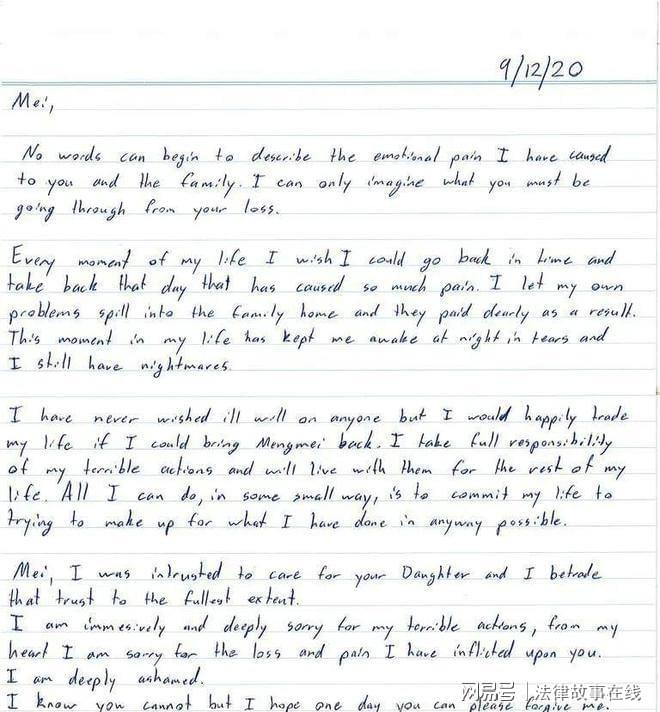 9/12/20
Mei,
No words can begin to describe the emotional pain I have caused
to you and the family. I can only imagine what you must be
going through from your loss.
Every moment of my life I wish I could go back in time and
take back that day that has caused so much pain. I let my own
problems spill into the family home and they paid dearly as a result.
This moment in my life has kept me awake at night in tears and
I still have nightmares
I have never wished ill will on anyone but I would happily trade
my life if I could bring Mengmei back. I take full responsibility
of my terrible actions and will live with them for the rest of my
life. All I can do, in some small way, is to commit my life to
trying to make up for what I have done in anyway possible.
Mei, I was intrusted to care for your Daughter and I betrade
that trust to the fullest extent.
I am immesively and deeply sorry for my terrible actions, from my
heart I am sorry for the loss and pain I have inflicted upon you.
I am deeply ashamed.
I know you cannot but I hope one day you can please forgive me.
网易号 | 法律故事在线